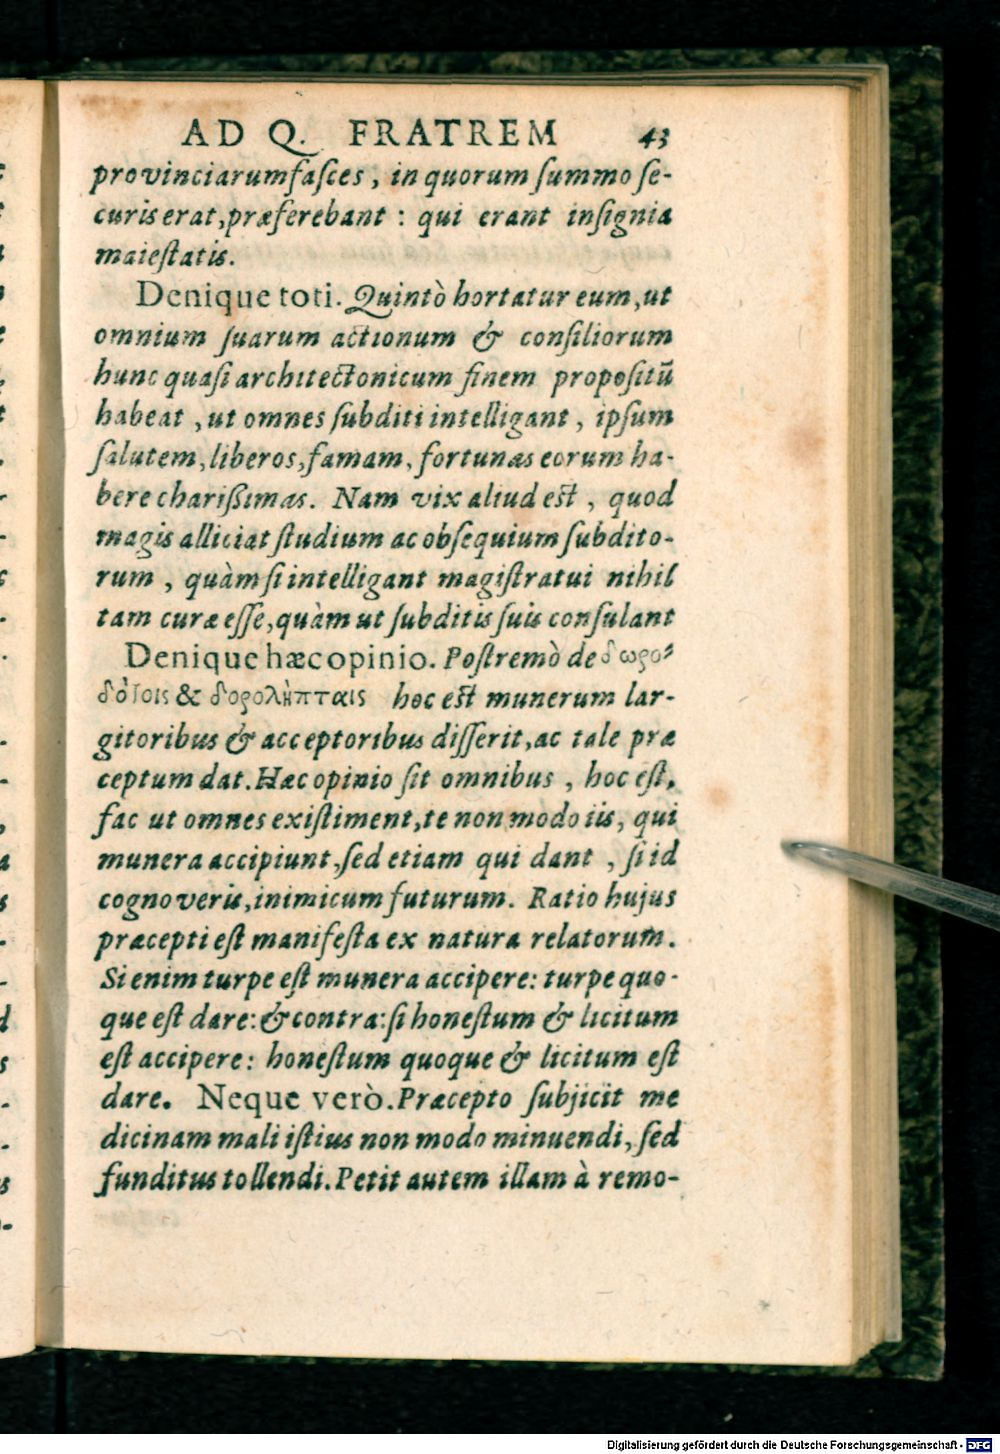 AD Q. FRATREM 43
provinciarum fasces, in quorum summo se-
curis erat, præferebant : qui erant insignia
maiestatis.
Denique toti. Quintò hortatur eum, ut
omnium suarum actionum & consiliorum
hunc quasi architectonicum finem propositũ
habeat, ut omnes subditi intelligant, ipsum
salutem, liberos, famam, fortunas eorum ha-
bere charißimas. Nam vix aliud est, quod
magis alliciat studium ac obsequium subdito-
rum, quàm si intelligant magistratui nihil
tam curæ esse, quàm ut subditis suis consulant
Denique hæc opinio. Postremò de δωρο-
δόοις & δορολήπταις hoc est munerum lar-
gitoribus & acceptoribus disserit, ac tale præ
ceptum dat. Hæc opinio sit omnibus, hoc est,
fac ut omnes existiment, te non modo iis, qui
munera accipiunt, sed etiam qui dant, si id
cognoveris, inimicum futurum. Ratio hujus
præcepti est manifesta ex natura relatorum.
Si enim turpe est munera accipere: turpe quo-
que est dare: & contra: si honestum & licitum
est accipere: honestum quoque & licitum est
dare. Neque verò. Præcepto subjicit me
dicinam mali istius non modo minuendi, sed
funditus tollendi. Petit autem illam à remo-
Digitalisierung gefördert durch die Deutsche Forschungsgemeinschaft - DFG